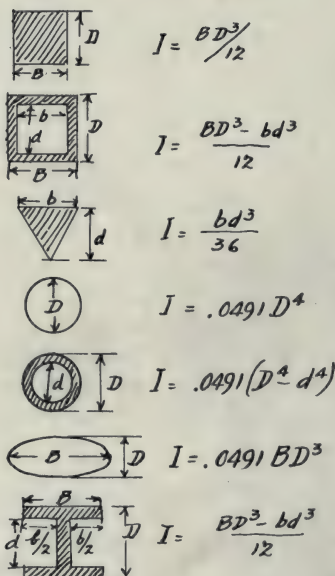 D
B
I = BD³/12
b
d
D
B
I = BD³ - bd³ / 12
b
d
I = bd³ / 36
D
I = .0491 D⁴
d
D
I = .0491 (D⁴ - d⁴)
B
D
I = .0491 BD³
B
d
b/2
b/2
D
I = BD³ - bd³ / 12